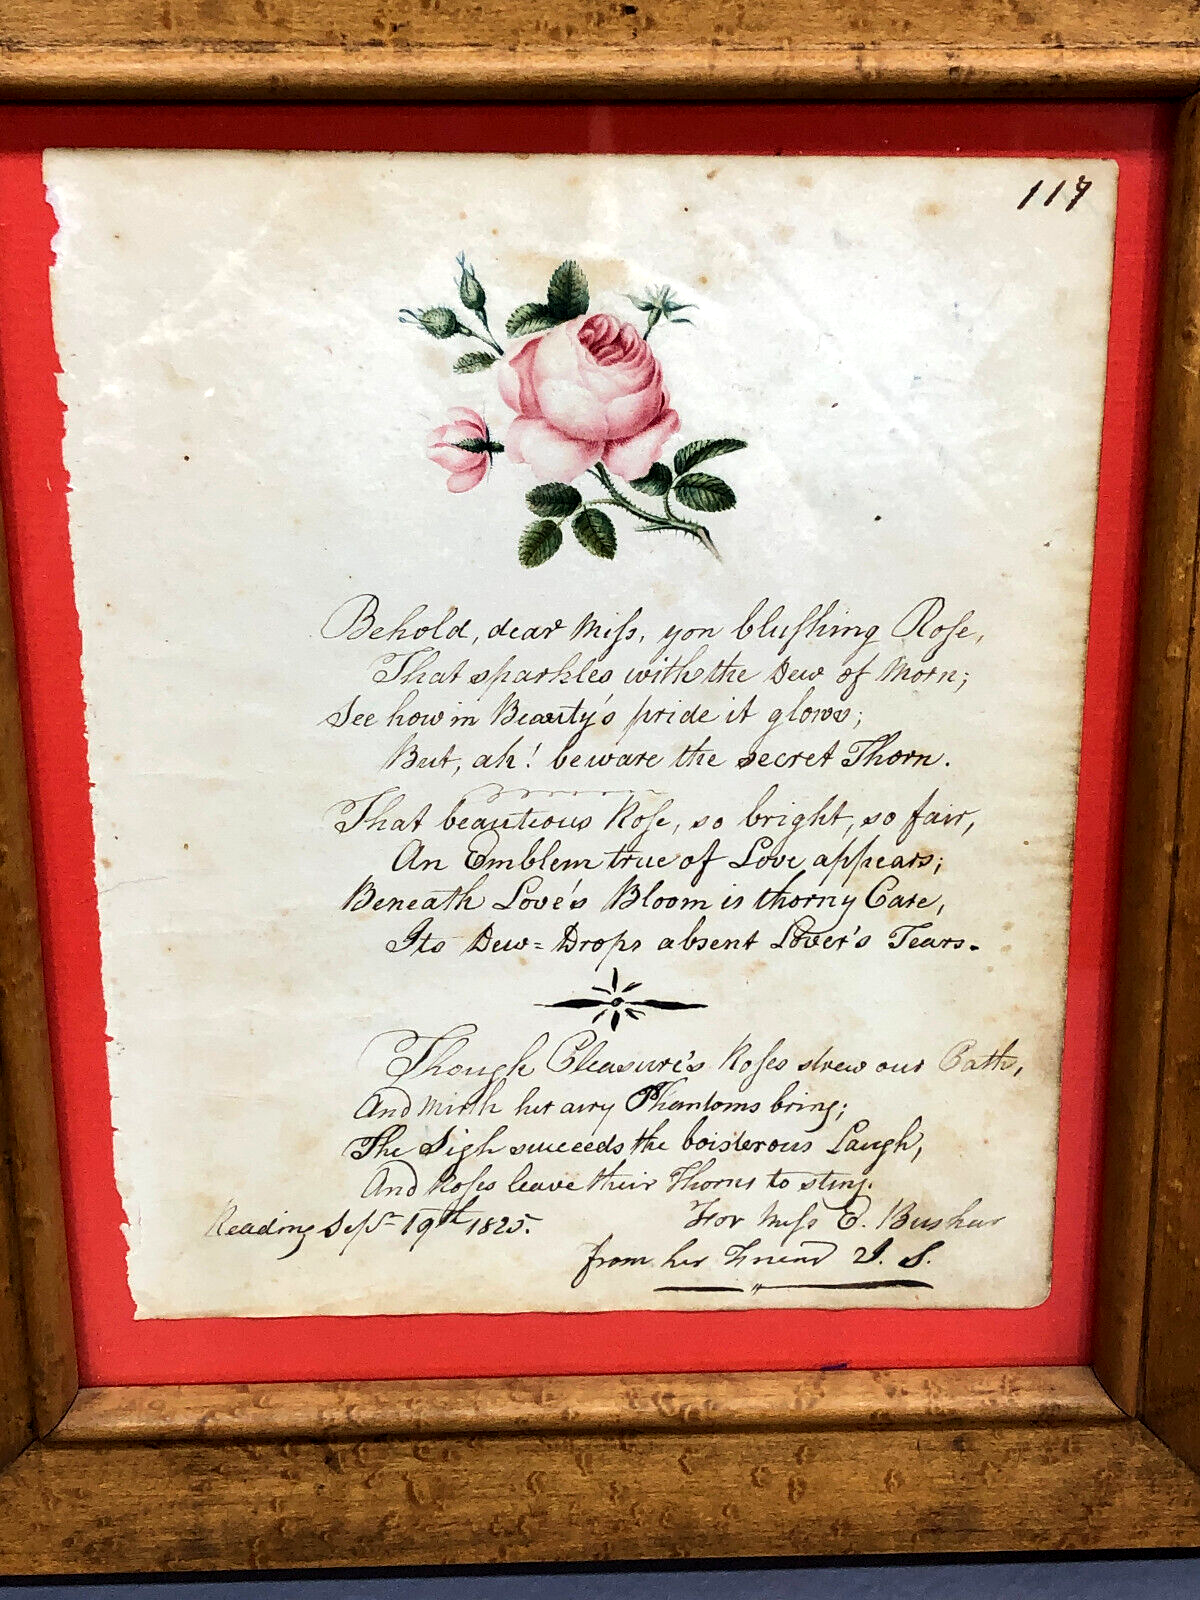 117
Behold, dear Miſs, yon bluſhing Roſe,
That sparkles with the Dew of Morn;
See how in Beauty's pride it glows;
But, ah! beware the secret Thorn.
That beauteous Roſe, so bright, so fair,
An Emblem true of Love appears;
Beneath Love's Bloom is thorny Care,
Its Dew=Drops absent Lover's Tears.
Though Pleasure's Roſes strew our Path,
And Mirth her airy Phantoms bring;
The Sigh succeeds the boisterous Laugh,
And Roſes leave their Thorns to sting.
Reading Sept 19th 1825. For Miſs E.
from her Friend J. S.